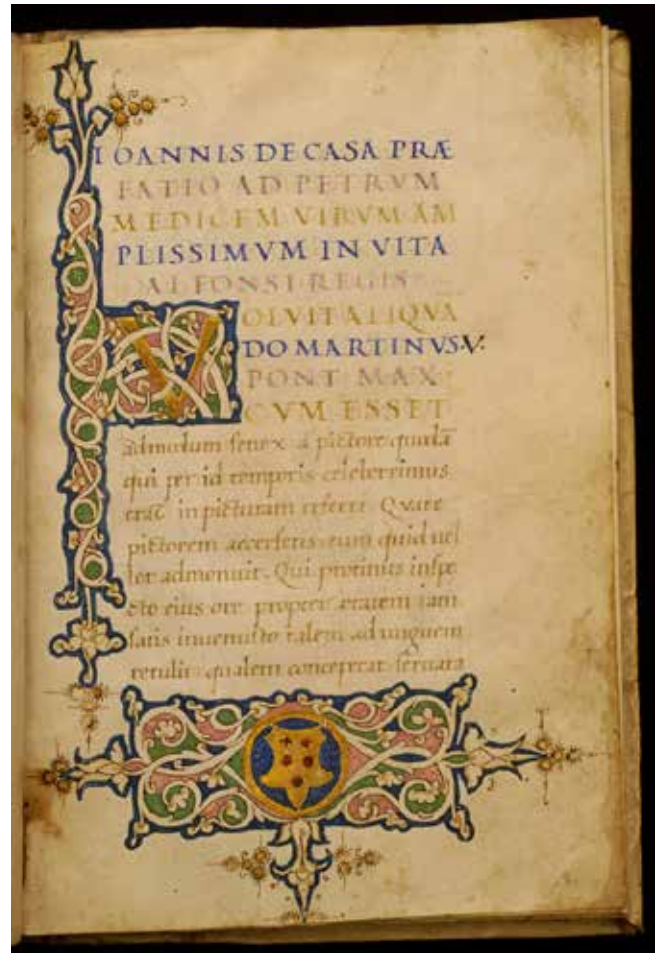 IOANNIS DE CASA PRÆ
FATIO AD PETRVM
MEDICEM VIRVM AM
PLISSIMVM IN VITA
ALFONSI REGIS
VOLVIT ALIQVA
DO MARTINVS·V·
PONT MAX
CVM ESSET
admodum senex a pictore quodā
qui per id temporis celeberrimus
erat in picturam referri Quare
pictorem accersens eum quid uel
let admonuit. Qui protinus inspe
cto eius ore propter etatem iam
satis inuenusto talem ad unguem
retulit qualem conceperat seruata